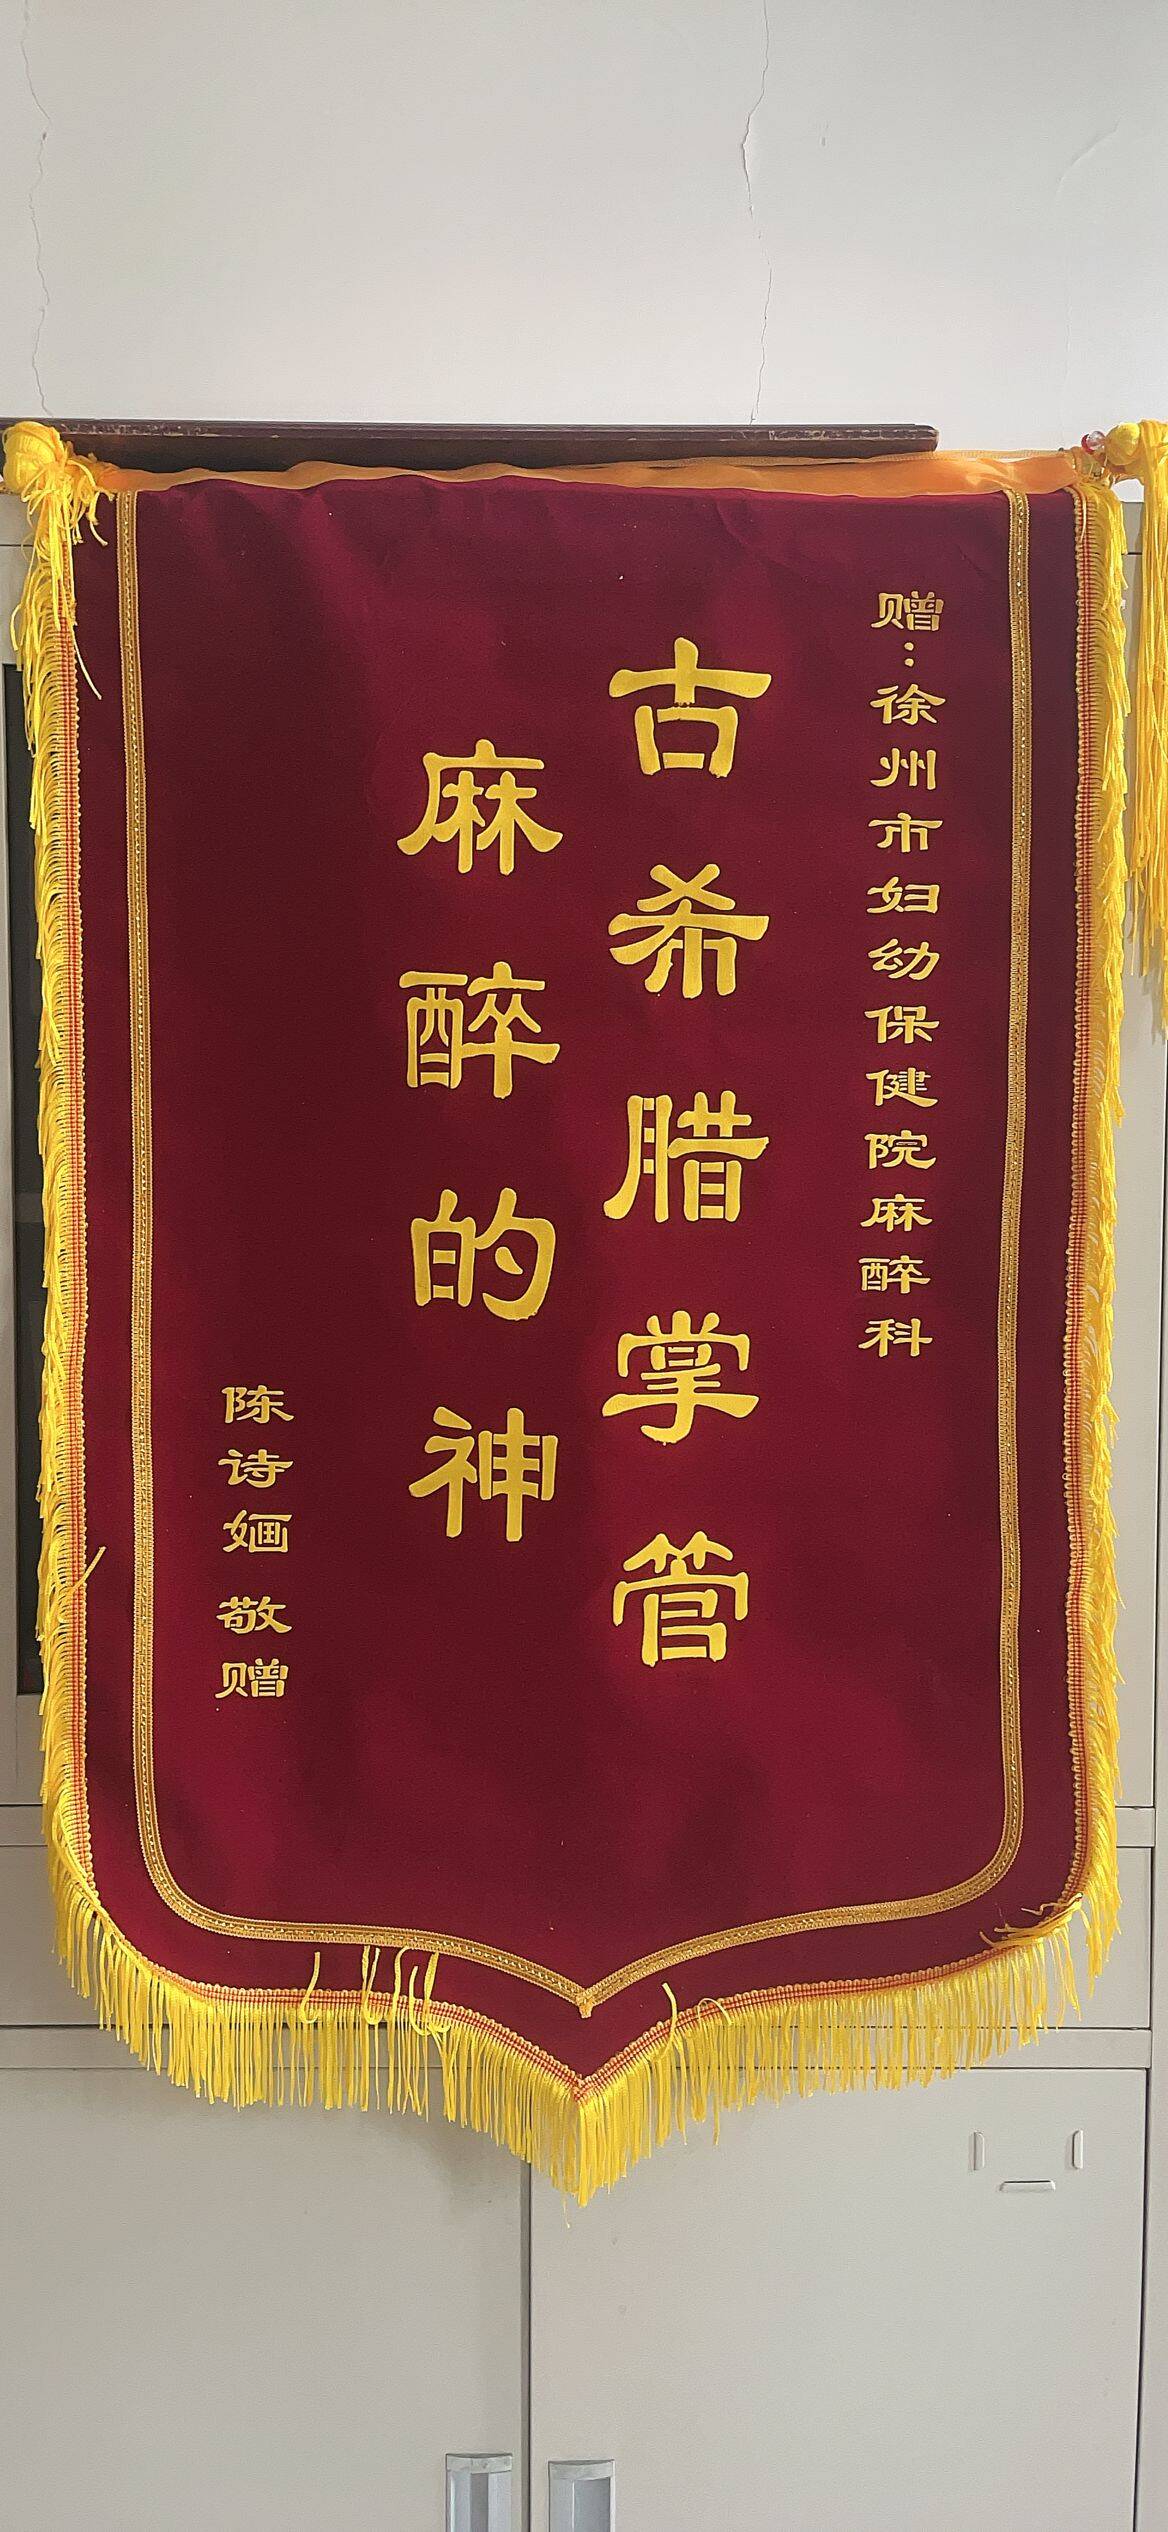 赠：徐州市妇幼保健院麻醉科
古希腊掌管
麻醉的神
陈诗婳 敬赠